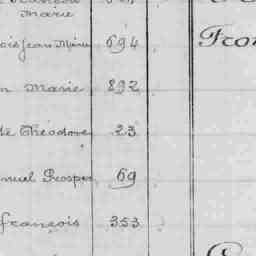 Marie
ois Jean Marie 694 Fro
n Marie 892
de Théodore 23
nuel Prosper 69
François 353